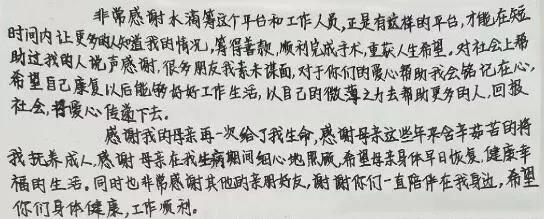 非常感谢水滴筹这个平台和工作人员,正是有这样的平台,才能在短
时间内让更多的人知道我的情况,筹得善款,顺利完成手术,重获人生希望。对社会上帮
助过我的人说声感谢,很多朋友我素未谋面,对于你们的爱心帮助我会铭记在心,
希望自己康复以后能够好好工作生活,以自己的微薄之力去帮助更多的人,回报
社会,将爱心传递下去。
感谢我的母亲再一次给了我生命,感谢母亲这些年来含辛茹苦的将
我抚养成人,感谢母亲在我生病期间细心地照顾,希望母亲身体早日恢复,健康幸
福的生活。同时也非常感谢其他的亲朋好友,谢谢你们一直陪伴在我身边,希望
你们身体健康,工作顺利。